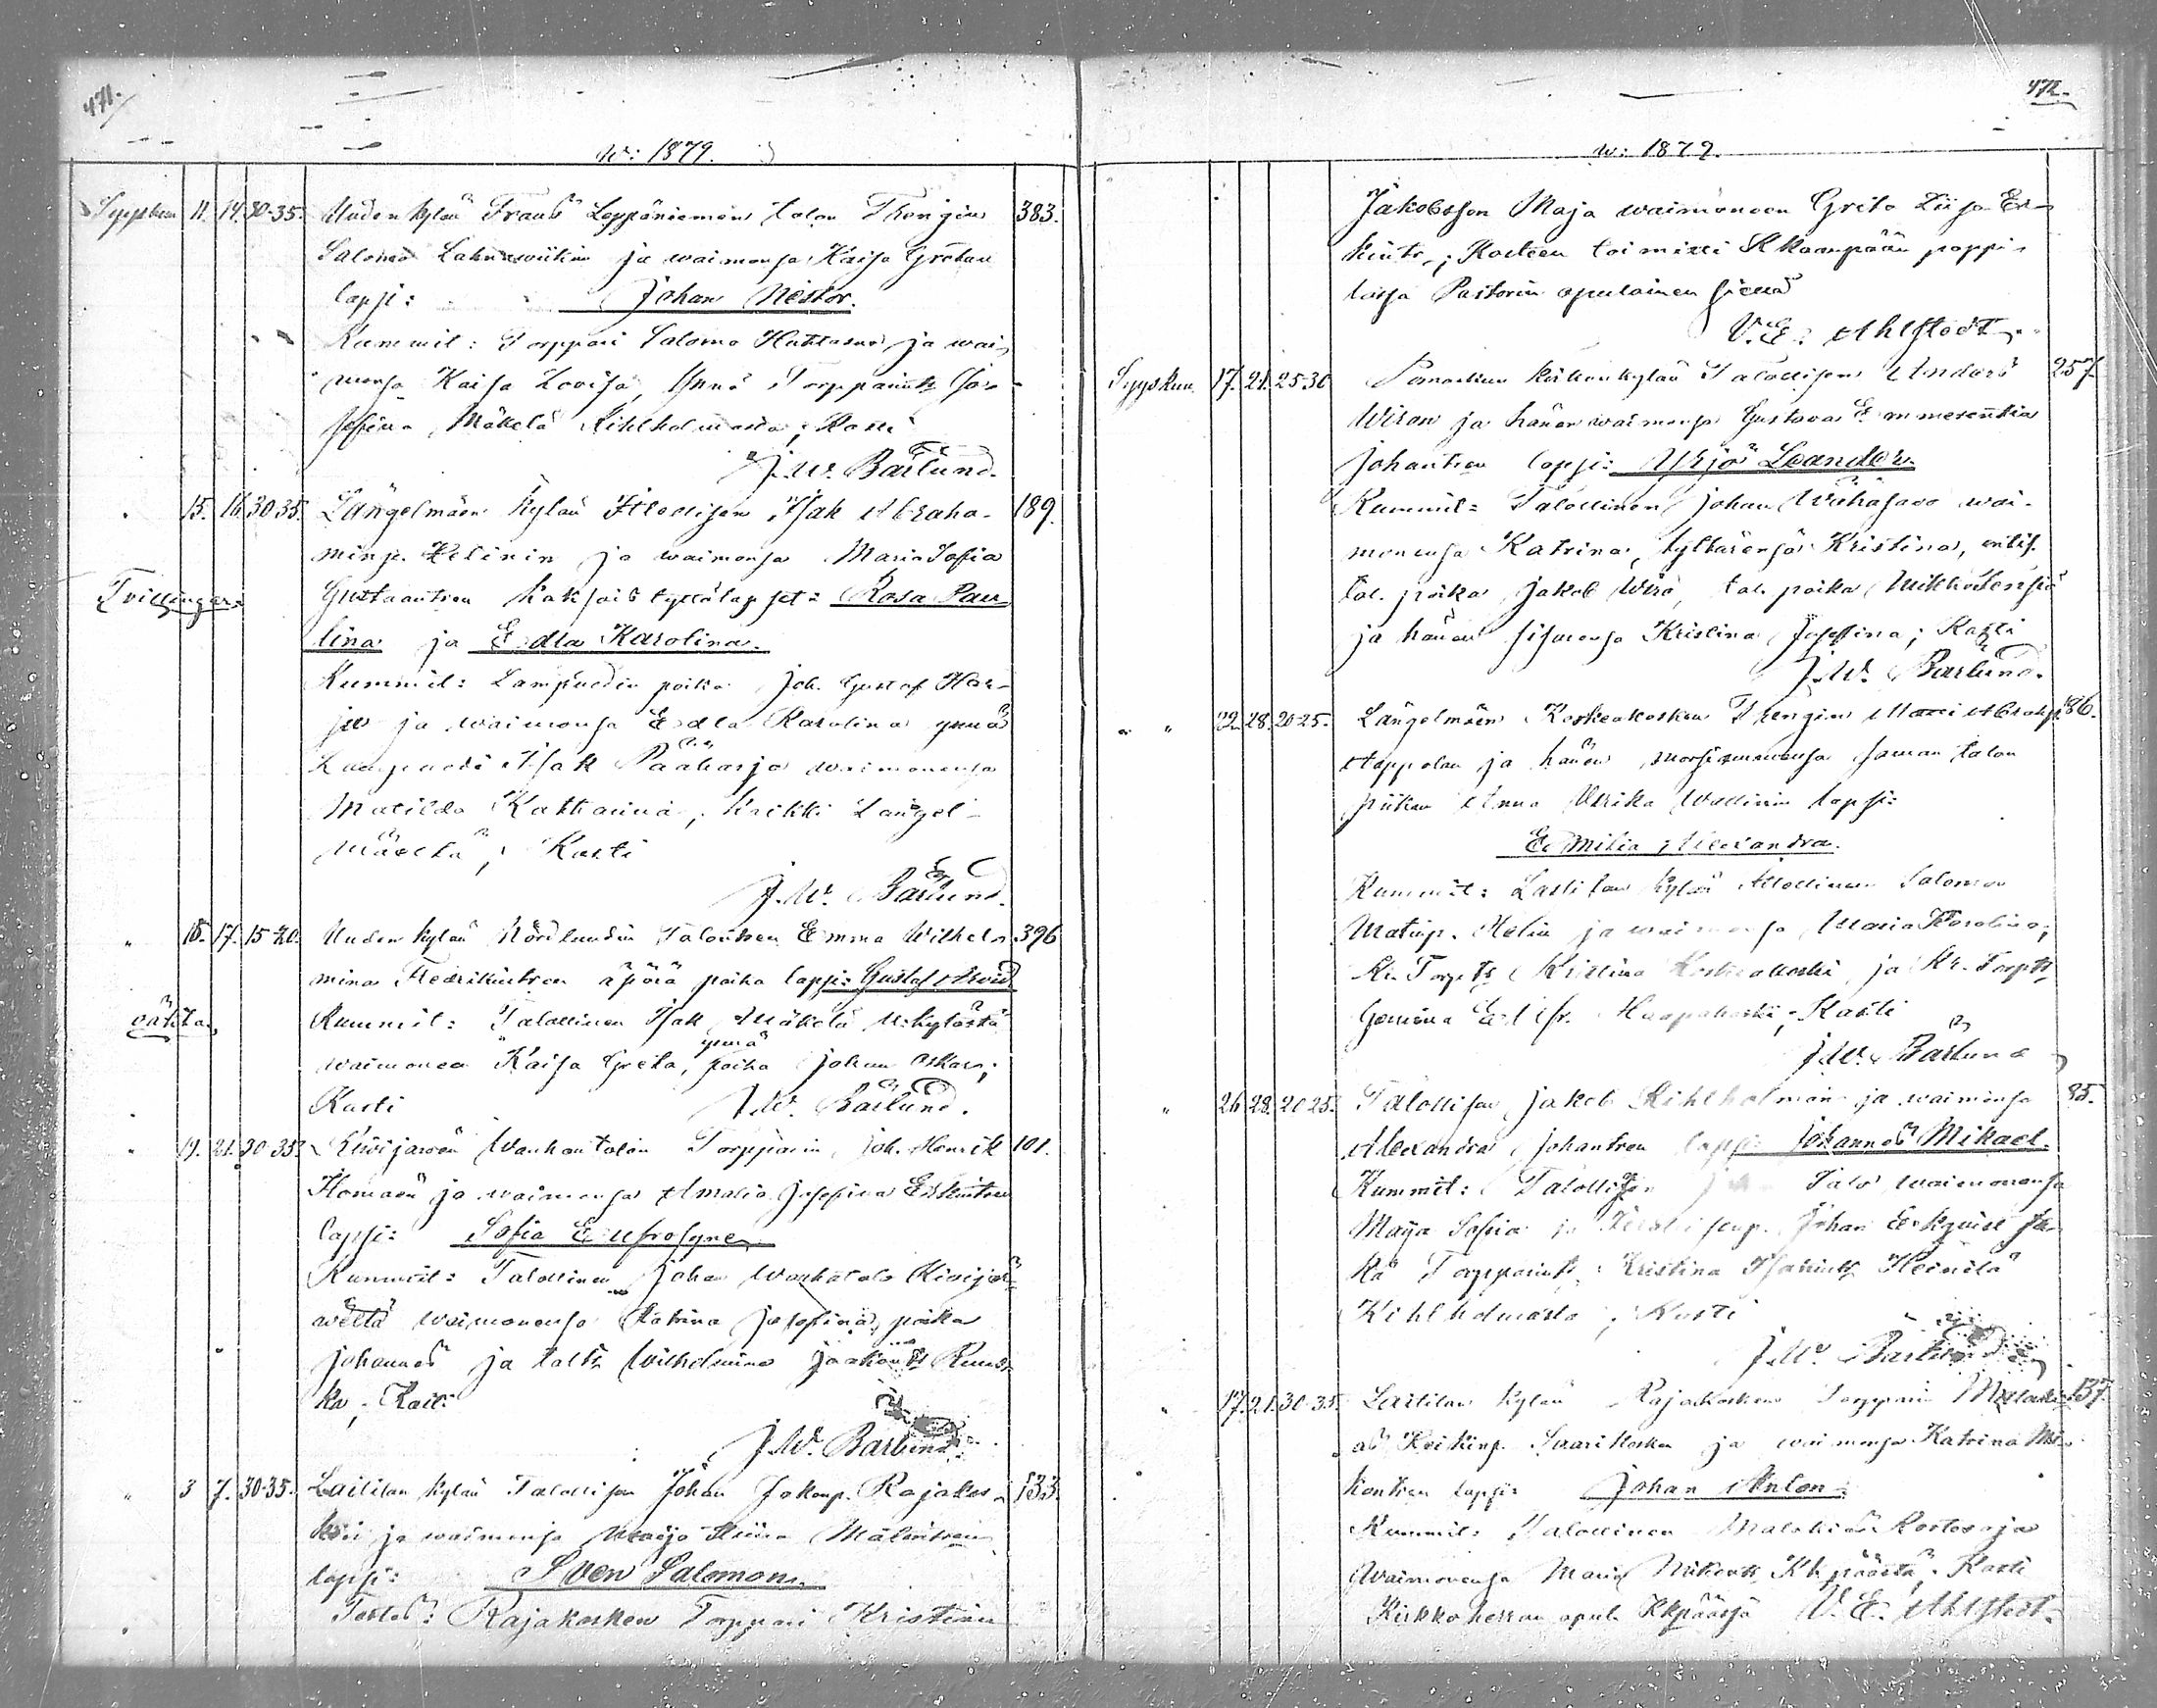 471.
w: 1879.
Syyskuu 11. 14. 30-35. Uuden kylän Frans Leppäniemen talon Trengin 383.
Salomo Lahnawiikin ja waimonsa Kaisa Gretan
lapsi: Johan Nestor.
Kummit: Torppari Salomo Huhtasno ja wai-
monsa Kaisa Lovisa, ynnä Torpparintr Jo-
sefiina Mäkelä Kihlholmasta; Kasti
J. W. Barlund.
15. 16. 30-35. Längelmäen kylän Itsellisen Isak Abraha- 189.
minp. Helinin ja waimonsa Maria Sofia
Tvillingar. Gustaantren kaksois tyttölapset: Rosa Pau-
lina ja Edla Karolina.
Kummit: Lampuodin poika Joh. Gustaf Har-
ju ja waimonsa Edla Karolina ynnä
Lampuodi Isak Pääharjo waimonensa
Matilda Katharina, Krikki Längel-
mäeltä; Kasti
J. W. Barlund.
" 16. 17. 15-20. Uuden kylän Nordlundin Talontren Emma Wilhel- 396
mina Fredrikintren äpärä poika lapsi: Gustaf Arvid
oäkta. Kummit: Talollinen Isak Mäkelä U:kylästä
waimonea Kaisa Greta, ynnä poika Johan Oskar;
Kasti J. W. Barlund.
19. 21. 30-35. Kiwijärwen Wanhantalon Torpparin Joh. Henrik 101.
Homasen ja waimonsa Amalia Josefina Erkintren
lapsi: Sofia Eufrosyne
Kummit: Talollinen Johan Wanhatalo Kiwijär-
weltä waimonensa Katrina Josefina, poika
Johannes ja taltr Wilhelmina
ka; Kasti
J. W. Barlund.
" 3 7. 30-35. Laitilan kylän Talollisen Johan Jakonp. Rajakos- 133.
ken ja waimonsa Maija Stiina
lapsi: Sven Salomon.
Testes: Rajakosken Torppari Kristian
472.
w: 1879.
Jakobsson Maja waimoneen Greta Liisa Er-
kintr.; Kasteen toimitti Kkoonpään pappi-
lassa Pastorin apulainen siellä
V. E. Ahlstedt.
Syyskuu 17. 21. 25-30 Pomarkun kirkonkylän Talollisen Anders 257.
Wiron ja hänen waimonsa Gustava Emmerentia
Johantren lapsi: Yrjö Leander
Kummit: Talollinen Johan Wähäsavo wai-
monensa Katrina, tyttärensä Kristina,
tal. poika Jakob Wirö, tal. poika Mikko
ja hänen sisarensa Kristina Josefina; Kasti
J. W. Barlund.
" " 22. 28. 20-25. Längelmäen Koskenkosken Trengin Matti Abrahp. 86.
Aappolan ja hänen morsiammensa saman talon
piikan Anna Ulrika Wallinin lapsi:
Emilia Alexandra.
Kummit: Laitilan kylän Itsellinen Salomon
Matinp. Helin ja waimonsa Maria Karolina;
Kr. Torp.tr Kristina Koskenkoski, ja Kr. Torp.tr
Gemina Haapakoski; Kasti
J. W. Barlund
" 26. 28. 20-25. Talollisen Jakob Kihlholman ja waimonsa 85.
Alexandra Johantren lapsi: Johannes Mikael.
Kummit: Talollisen Talo waimonensa
Maija Sofia ja Johan Erkqvist se-
kä Torpparintr. Kristina Heinilä
Kihlholmasta; Kasti
J. W. Barlund
" 17. 21. 30-35. Laitilan kylän Rajakosken Torpparin Malaki- 137.
as Keikinp. Saarikosken ja waimonsa Katrina Mi-
kontren lapsi: Johan Anton.
Kummit: Talollinen Malakias Rostenoja
Waimonensa Maria Mikontr Kkpäästä; Kasti
Kirkkoherran apul. Kkpäässä V. E. Ahlstedt.